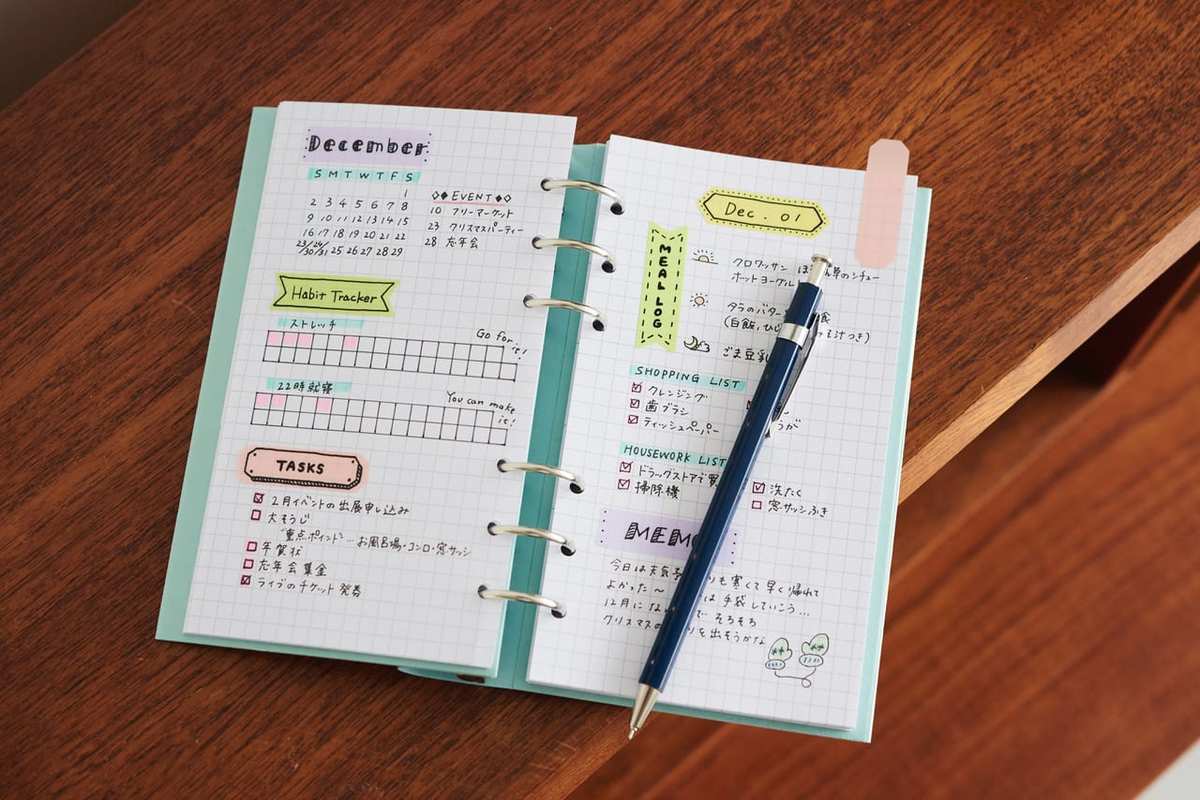 December
S M T W T F S
1
2 3 4 5 6 7 8
9 10 11 12 13 14 15
16 17 18 19 20 21 22
23/30 24/31 25 26 27 28 29
◇◆EVENT◆◇
10 フリーマーケット
23 クリスマスパーティー
28 忘年会
Habit Tracker
ストレッチ
Go for it!
22時就寝
You can make it!
TASKS
2月イベントの出展申し込み
大そうじ
"重点ポイント"…お風呂場・コンロ・窓サッシ
年賀状
忘年会集金
ライブのチケット発券
Dec. 01
MEAL LOG
クロワッサン ほ 草のシチュー
ホットヨーグル
タラのバター 食
(白飯、ひじ 汁つき)
ごま豆乳
SHOPPING LIST
クレンジング
歯ブラシ
ティッシュペーパー
うが
HOUSEWORK LIST
ドラッグストアで買
掃除機
洗たく
窓サッシふき
MEMO
今日は天気予 りも寒くて早く帰れて
よかった〜 は手袋していこう…
12月にな で そろそろ
クリスマスの りを出そうかな